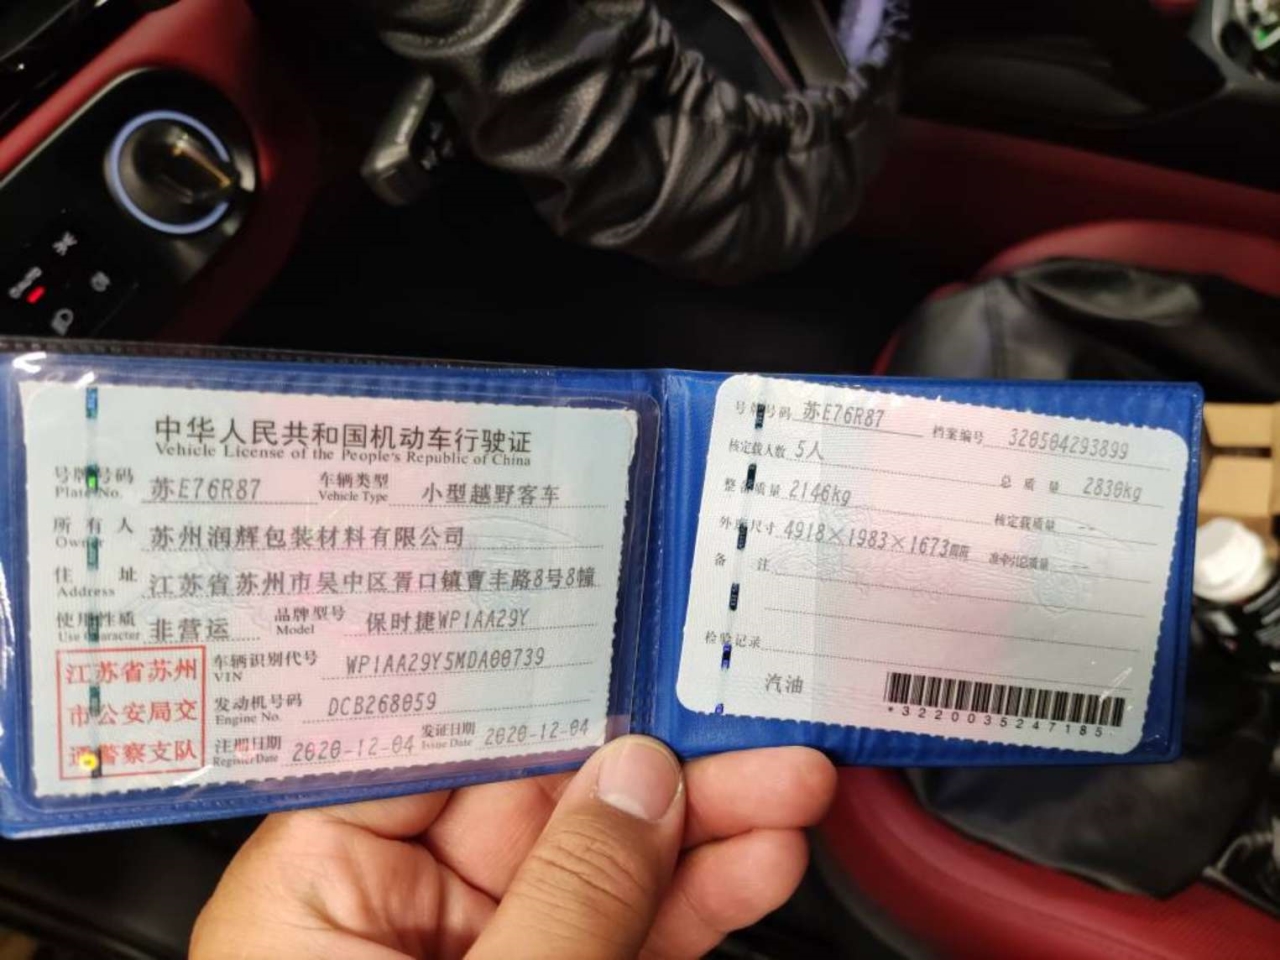 中华人民共和国机动车行驶证
Vehicle License of the People's Republic of China
号牌号码 苏E76R87 车辆类型 小型越野客车
Plate No. Vehicle Type
所有人 苏州润辉包装材料有限公司
Owner
住址 江苏省苏州市吴中区胥口镇曹丰路8号8幢
Address
使用性质 非营运 品牌型号 保时捷WP1AA29Y
Use Character Model
江苏省苏州
市公安局交
通警察支队
车辆识别代号 WP1AA29Y5MDA00739
VIN
发动机号码 DCB268059
Engine No.
注册日期 2020-12-04 发证日期 2020-12-04
Register Date Issue Date
号牌号码 苏E76R87 档案编号 320504293899
核定载人数 5人 总质量 2830kg
整备质量 2146kg 核定载质量 --
外廓尺寸 4918×1983×1673mm 准牵引总质量 --
备注
检验记录
汽油
*3220035247185